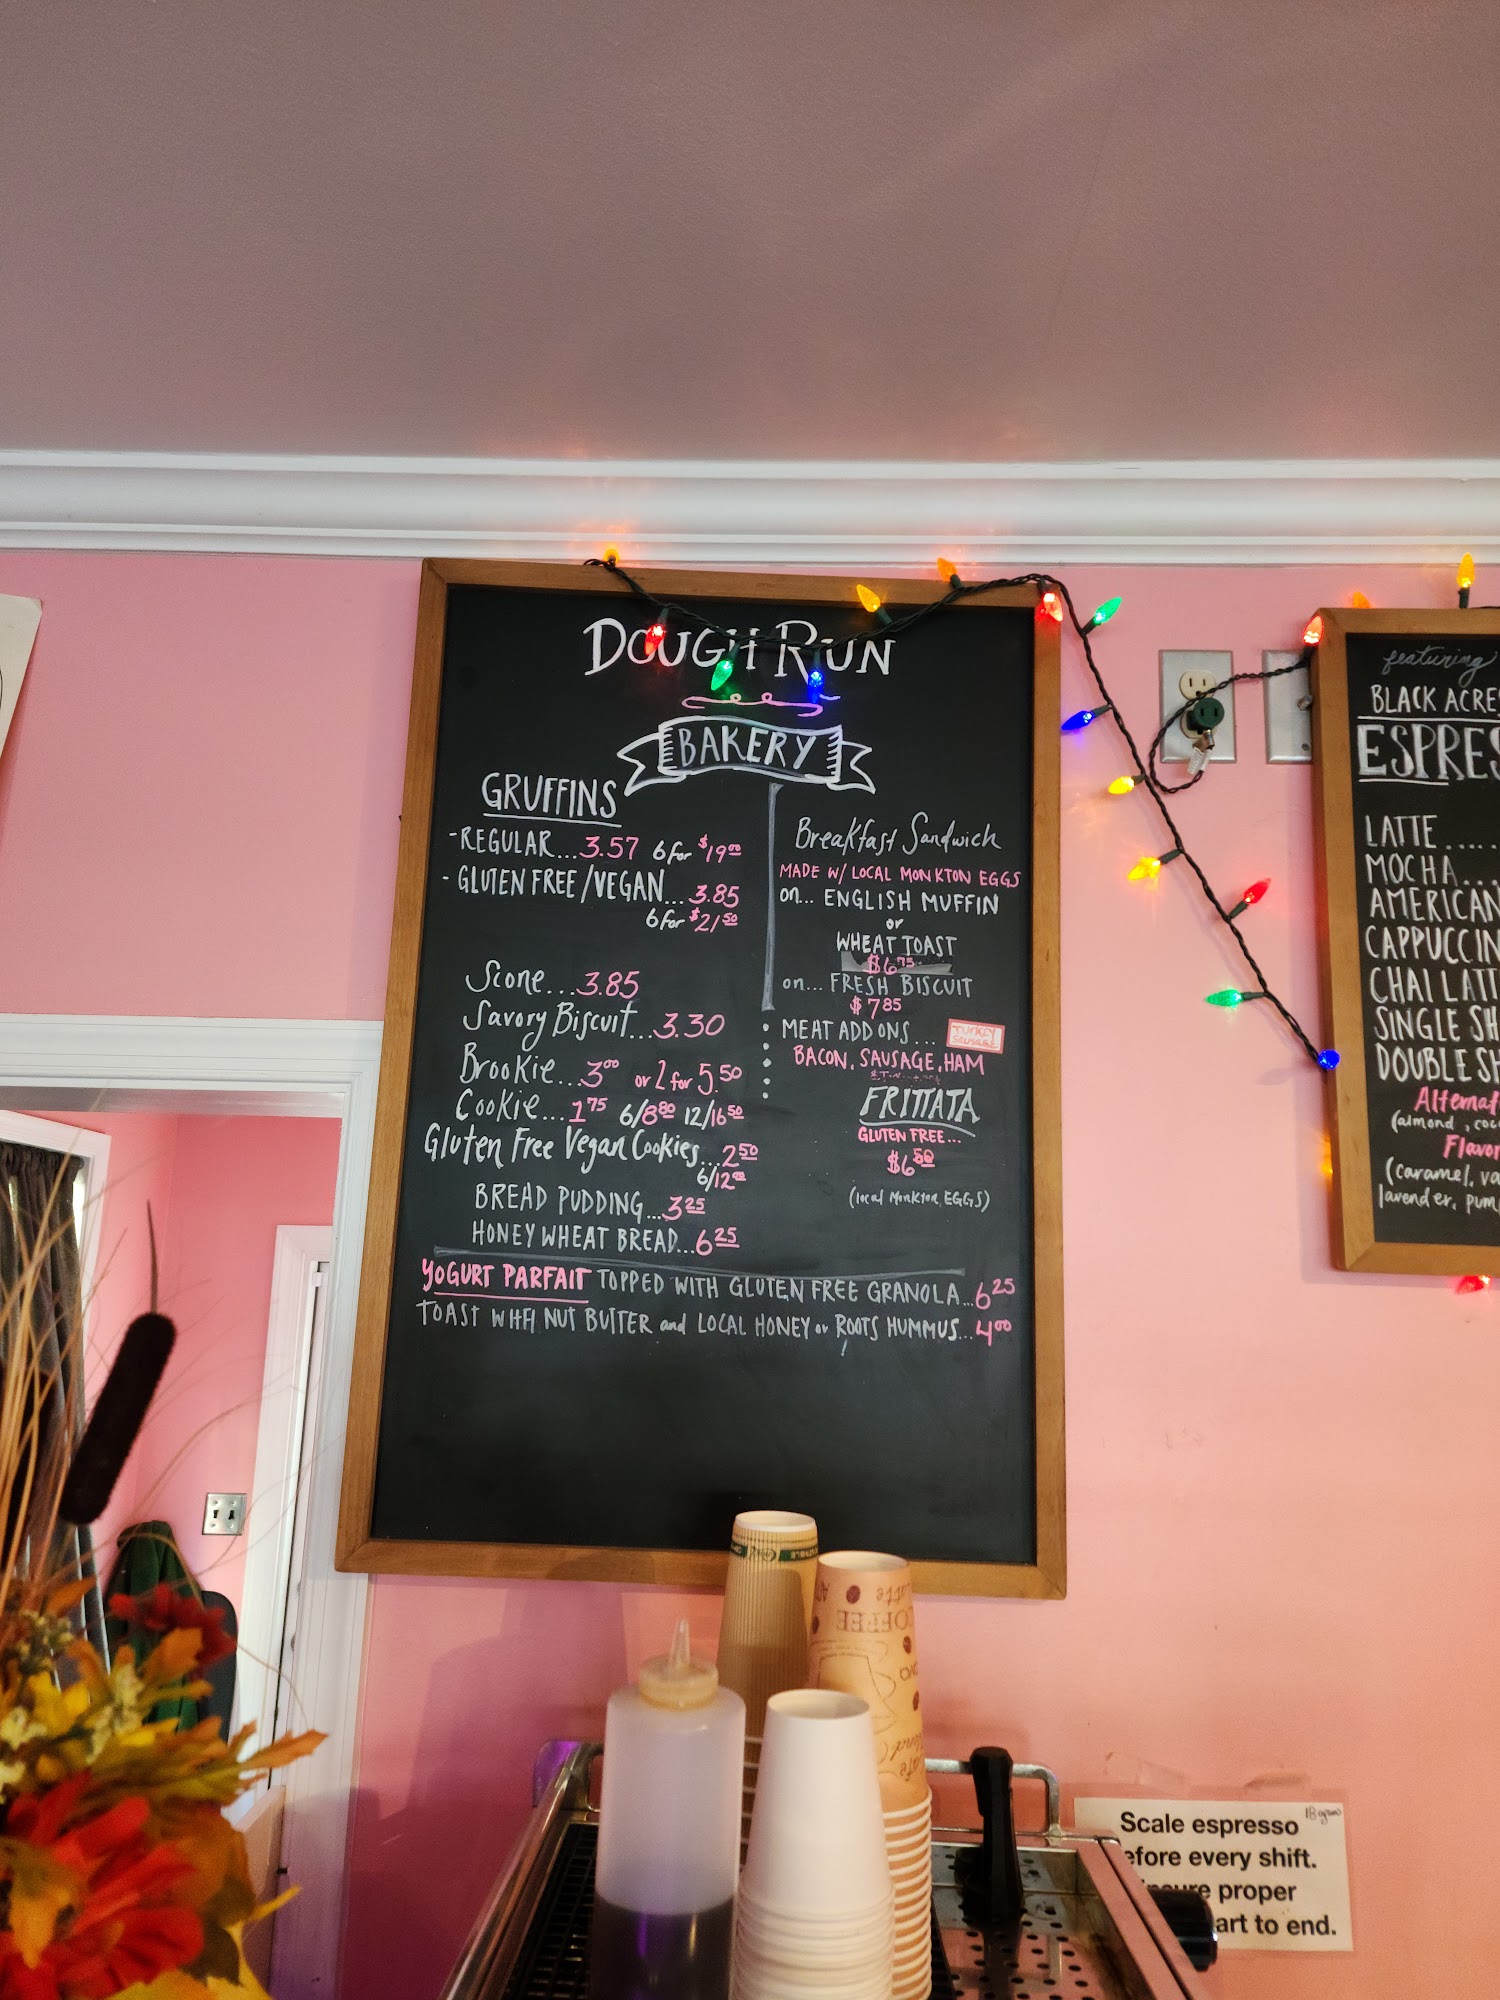 DOUGH RUN
BAKERY
GRUFFINS
-REGULAR...3.57 6 for $19.00
- GLUTEN FREE/VEGAN...3.85
6 for $21.50
Scone...3.85
Savory Biscuit...3.30
Brookie...3.00 or 2 for 5.50
Cookie...1.75 6/8.80 12/16.50
Gluten Free Vegan Cookies...2.50
6/12.00
BREAD PUDDING...3.25
HONEY WHEAT BREAD...6.25
Breakfast Sandwich
MADE W/ LOCAL MONKTON EGGS
on... ENGLISH MUFFIN
or
WHEAT TOAST
$6.75
on... FRESH BISCUIT
$7.85
MEAT ADD ONS... TURKEY
SAUSAGE
BACON, SAUSAGE, HAM
FRITTATA
GLUTEN FREE...
$6.50
(local Monkton EGGS)
YOGURT PARFAIT TOPPED WITH GLUTEN FREE GRANOLA...6.25
TOAST WITH NUT BUTTER and LOCAL HONEY or ROOTS HUMMUS...4.00
featuring
BLACK ACRE
ESPRES
LATTE.....
MOCHA...
AMERICAN
CAPPUCCIN
CHAI LATT
SINGLE SH
DOUBLE SH
Alternat
(almond, coc
Flavor
(caramel, va
lavender, pum
latte
COFFEE
Scale espresso 18 gram
efore every shift.
sure proper
art to end.